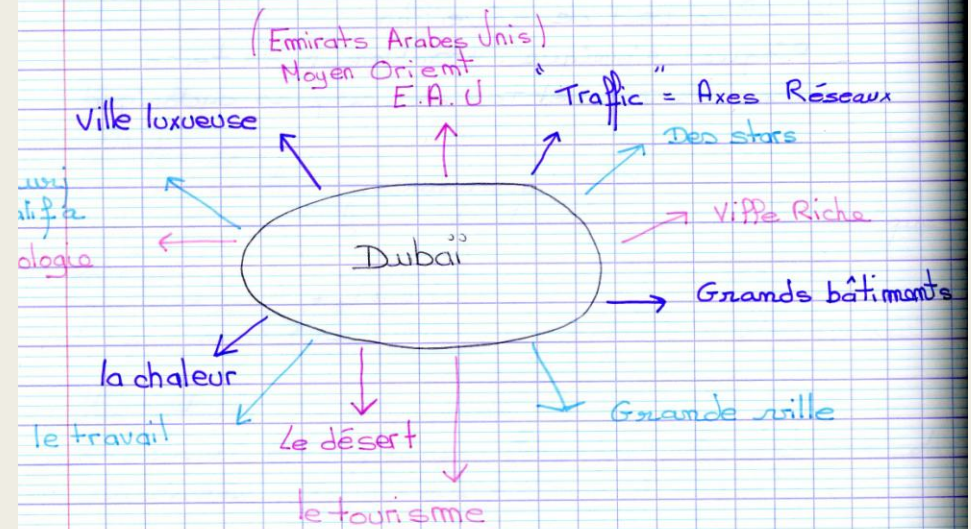 (Emirats Arabes Unis)
Moyen Orient
E.A.U
"Traffic" = Axes Réseaux
Ville luxueuse
Des stars
Ville Riche
Dubaï
Grands bâtiments
la chaleur
Grande ville
le travail
Le désert
le tourisme